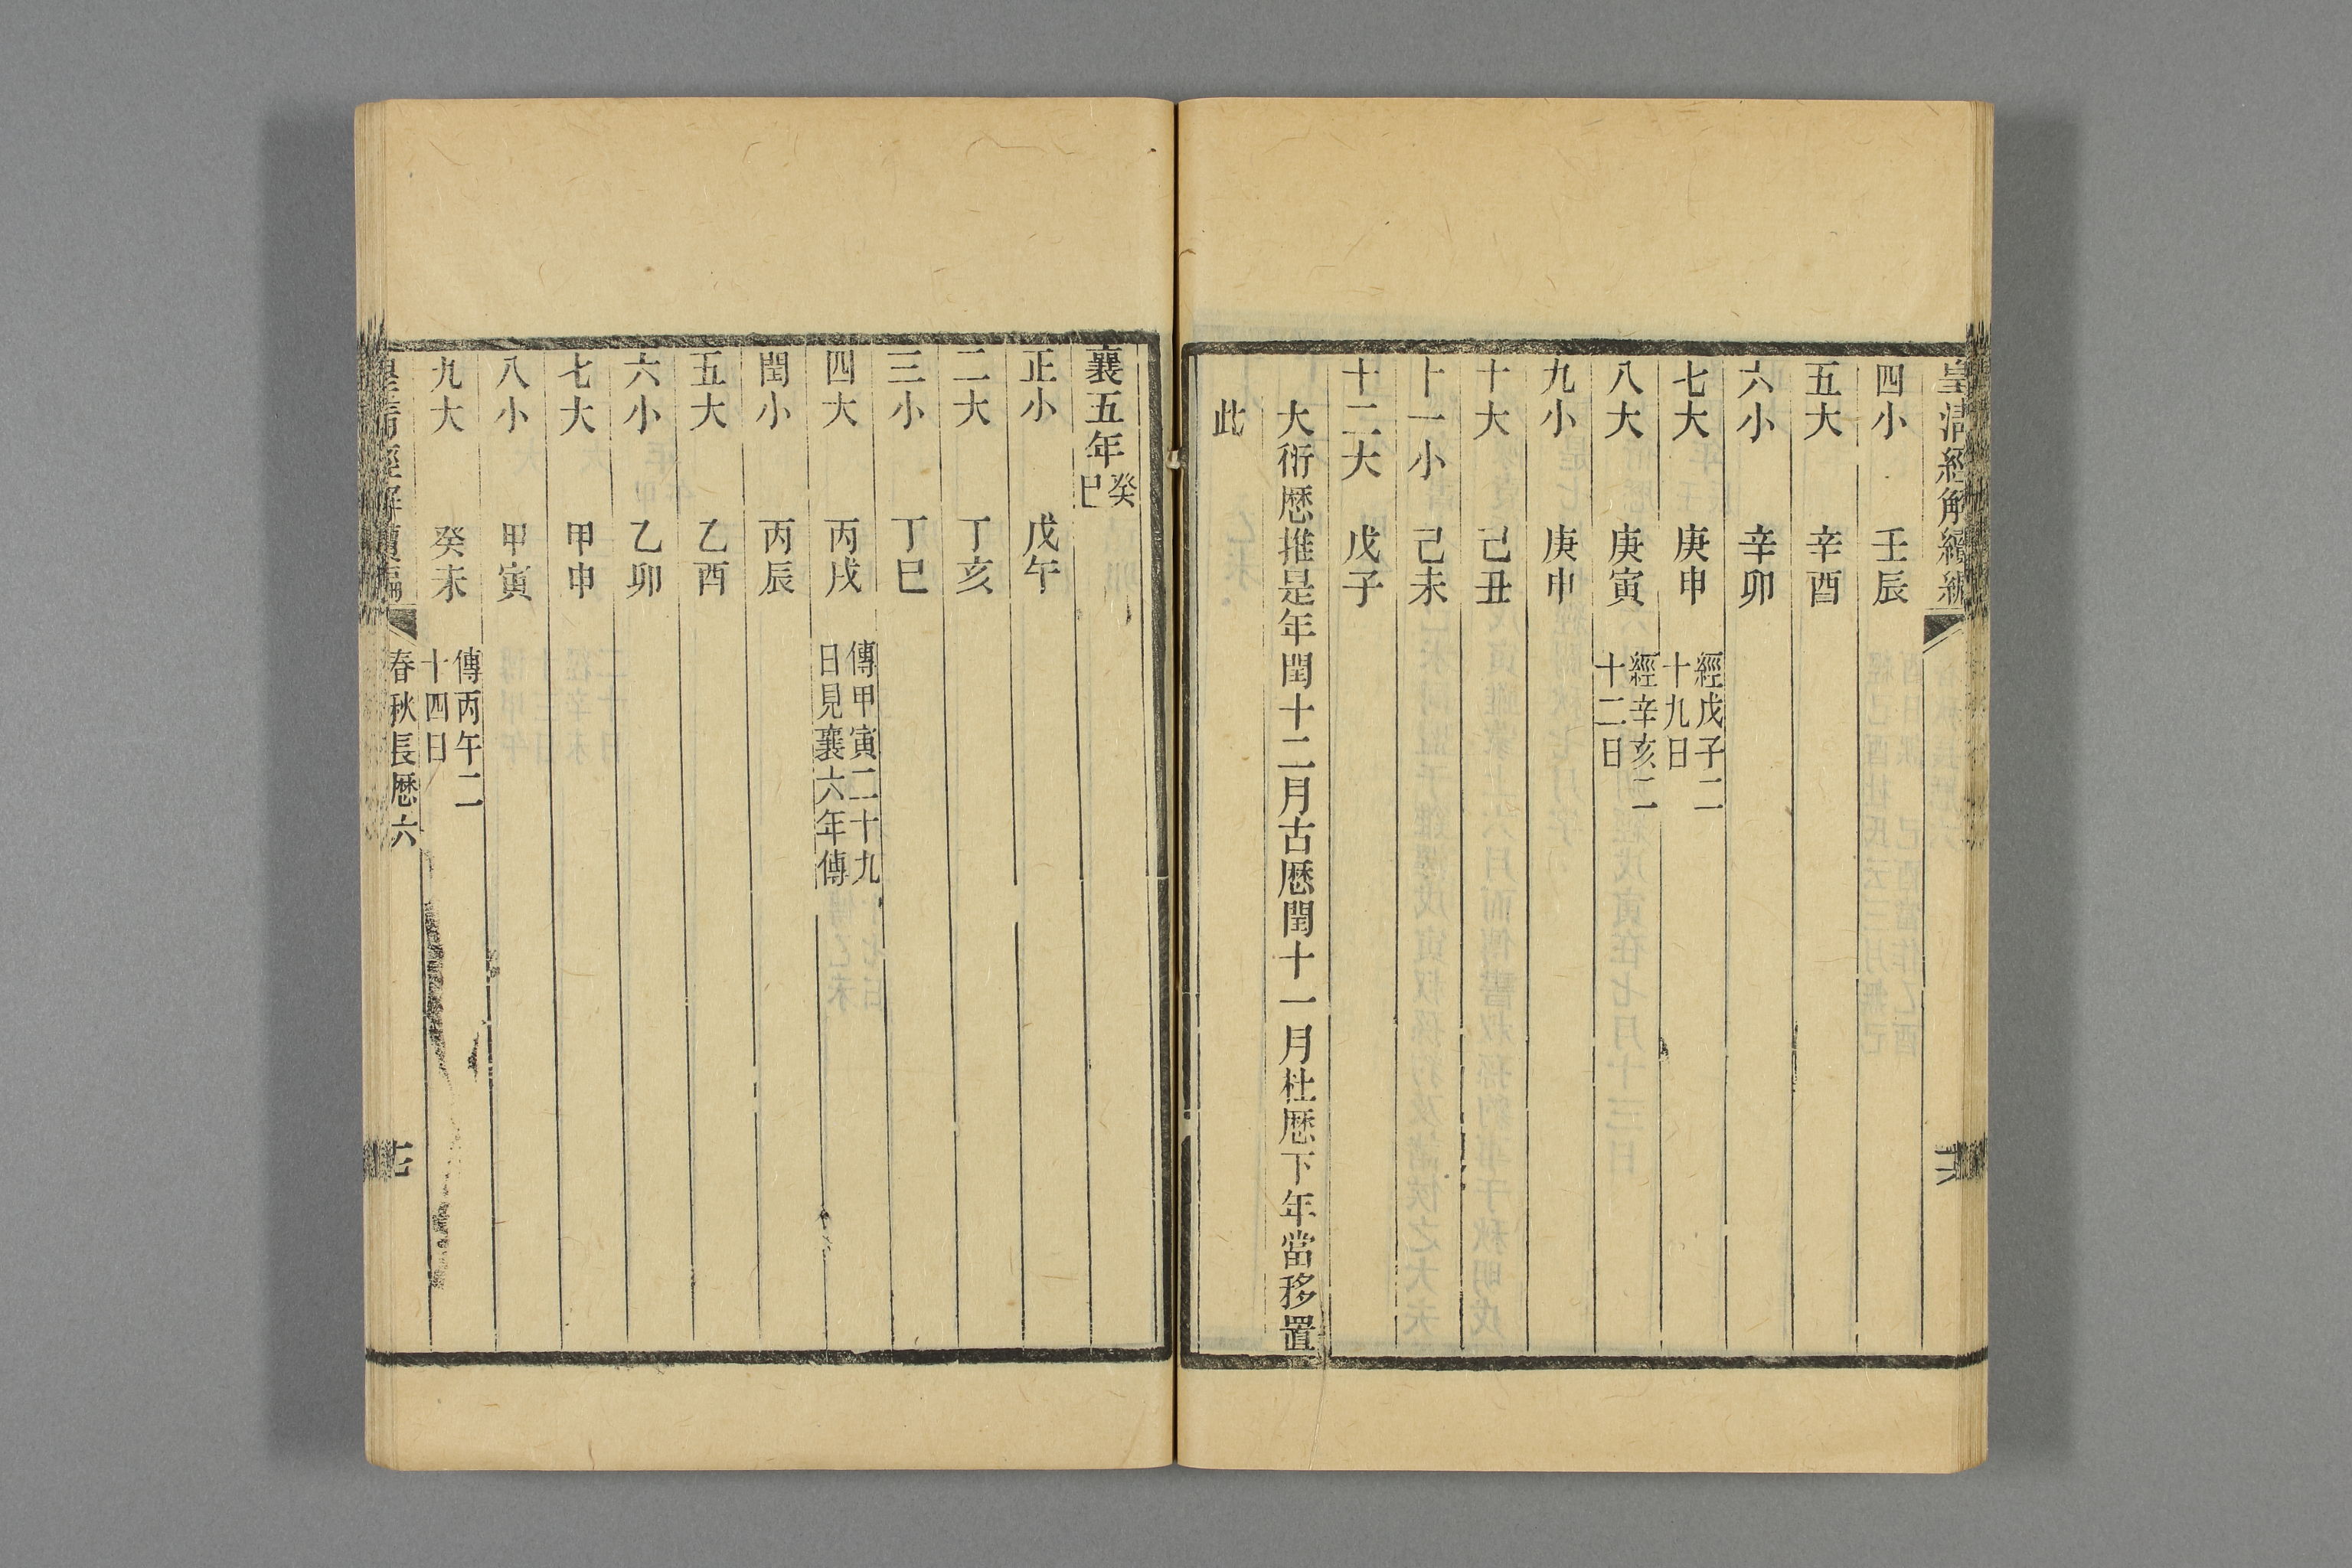 皇清經解續編
四小 壬辰
五大 辛酉
六小 辛卯
七大 庚申 經戊子二
十九日
八大 庚寅 經辛亥二
十二日
九小 庚申
十大 己丑
十一小 己未
十二大 戊子
大衍厯推是年閏十二月古厯閏十一月杜厯下年當移置
此
襄五年 癸
巳
正小 戊午
二大 丁亥
三小 丁巳
四大 丙戌 傳甲寅二十九
日見襄六年傳
閏小 丙辰
五大 乙酉
六小 乙卯
七大 甲申
八小 甲寅
九大 癸未 傳丙午二
十四日
皇清經解續編 春秋長厯六